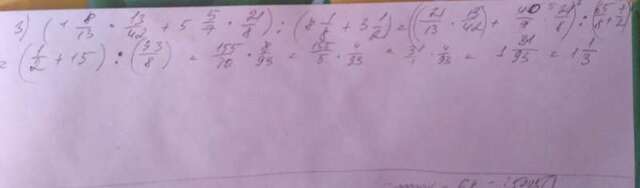 3) (1 8/13 · 13/42 + 5 5/7 · 21/8) : (8 1/8 + 3 1/2) = ((21/13 · 13/42 + 40/7 · 21/8) : (65/8 + 7/2)
= (1/2 + 15) : (93/8) = 155/10 · 8/93 = 155/5 · 4/93 = 31/1 · 4/93 = 1 31/93 = 1 1/3